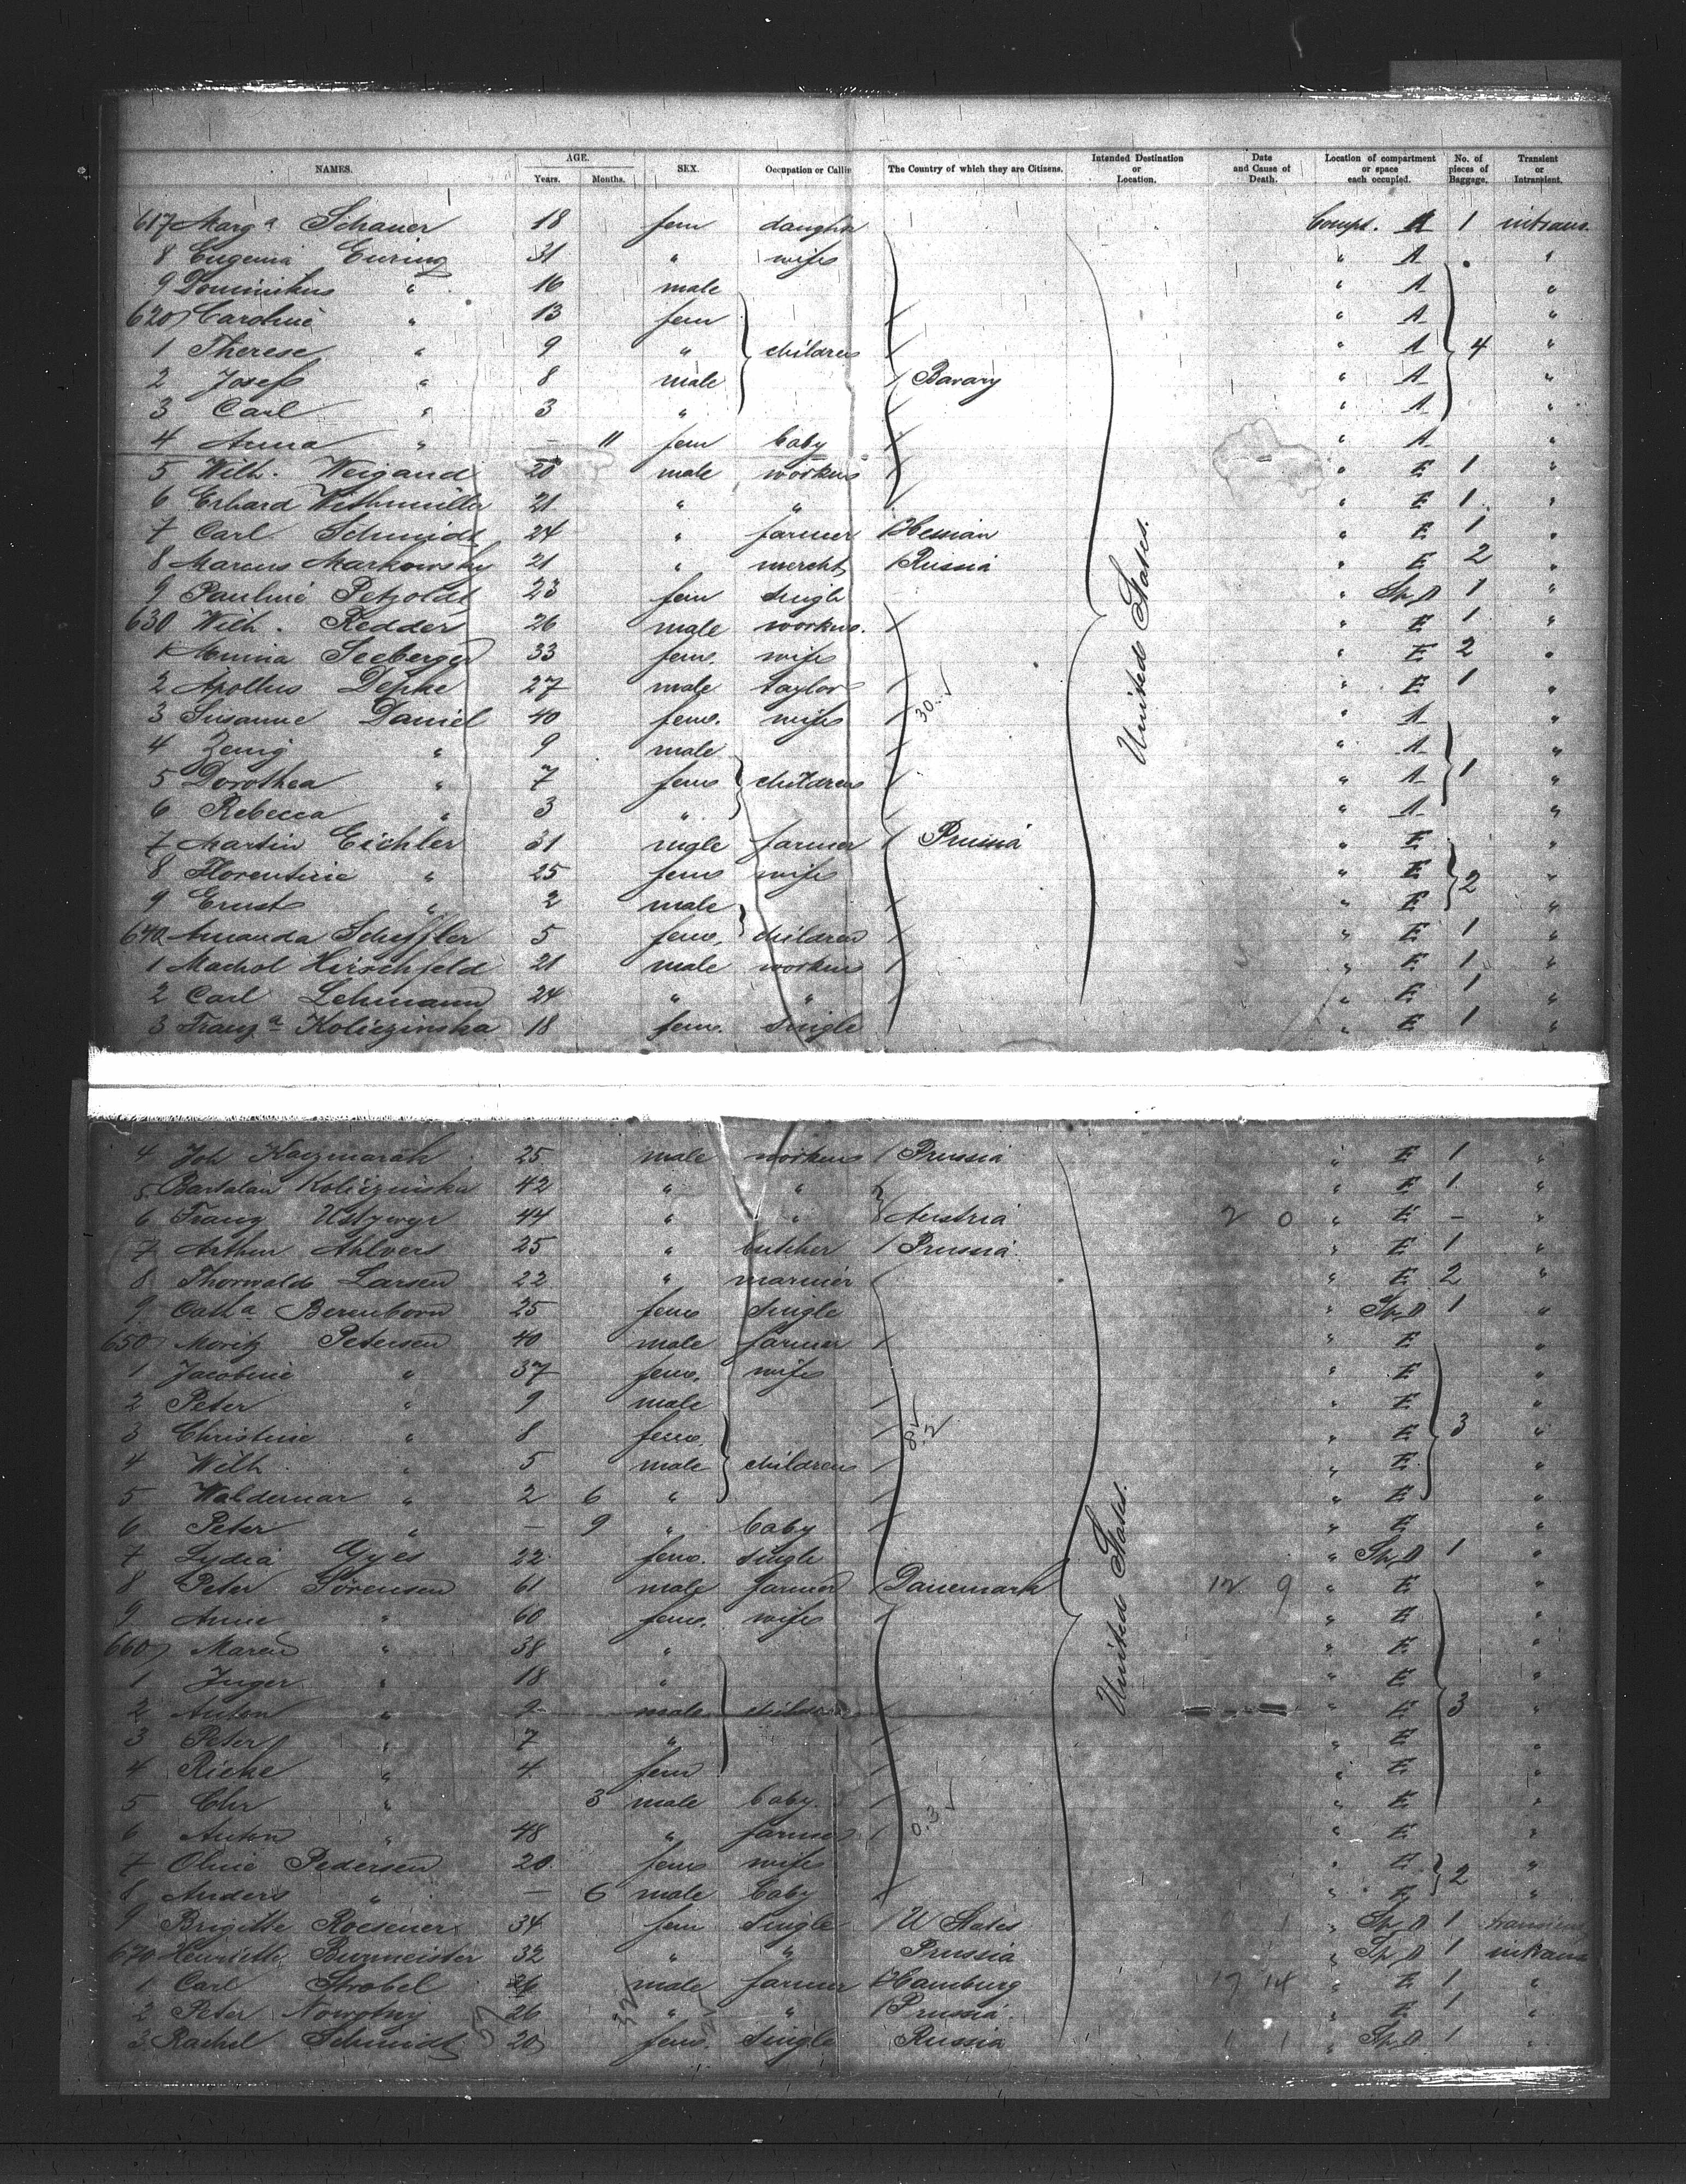 NAMES. AGE. Years. Months. SEX. Occupation or Callin The Country of which they are Citizens. Intended Destination or Location. Date and Cause of Death. Location of compartment or space each occupied. No. of pieces of Baggage. Transient or Intransient.
617 Marg a Schauer 18 fem daughtr Compt. A 1 intrans.
8 Eugenia Euring 31 " wife " A "
9 Dominikus " 16 male " A "
620 Caroline " 13 fem " A "
1 Therese " 9 " children " A 4 "
2 Josef " 8 male Bavary " A "
3 Carl " 3 " " A "
4 Anna " — 11 fem baby " A "
5 Wilh. Weigand 20 male workm " E 1 "
6 Erhard Withmüller 21 " " " E 1 "
7 Carl Schmidt 24 " farmer Hessian " E 1 "
8 Marcus Markowsky 21 " mercht Russia " E 2 "
9 Pauline Petzoldt 23 fem single " Sp. D 1 "
630 Wilh. Redder 26 male workm. " E 1 "
1 Minna Seeberger 33 fem. wife " E 2 "
2 Depke 27 male taylor 30 " E 1 "
3 Susanne Daniel 40 fem. wife United States. " A "
4 " 9 male " A "
5 Dorothea " 7 fem children " A 1 "
6 Rebecca " 3 " " A "
7 Martin Eichler 31 male farmer Prussia " E "
8 Florentine " 25 fem wife " E 2 "
9 Ernst " 2 male " E "
640 Amanda Scheffler 5 fem. children " E 1 "
1 Machol Hirschfeld 21 male workm " E 1 "
2 Carl Lehmann 24 " " " E 1 "
3 Franz a Koliczinska 18 fem. single " E 1 "
4 Joh Kaczmarak 25 male workm Prussia " E 1 "
5 Bartalan Koliczinska 42 " " " E 1 "
6 Franz 44 " " Austria 2 0 " E — "
7 Arthur Ahlvers 25 " butcher Prussia " E 1 "
8 Thorwald Larsen 22 " mariner " E 2 "
9 Cath a Berenborn 25 fem single " Sp. D 1 "
650 Moritz Petersen 40 male farmer " E "
1 Jacobine " 37 fem. wife " E "
2 Peter " 9 male " E "
3 Christine " 8 fem. 8.2 " E 3 "
4 Wilh. " 5 male children " E "
5 Waldemar " 2 6 " " E "
6 Peter " — 9 " baby " E "
7 Lydia Gyes 22 fem. single " Sp. D 1 "
8 Peter Sörensen 61 male farmer Danemark 12 9 " E "
9 Anne " 60 fem. wife United States. " E "
660 Maren " 38 " " E "
1 Inger " 18 " " E "
2 Anton " 9 male children " E 3 "
3 Peter " 7 " " E "
4 Rieke " 4 fem " E "
5 Chr " 3 male baby " E "
6 Anton " 48 " farmer 0.3 " E "
7 Oline Pedersen 20 fem wife " E 2 "
8 Anders " — 6 male baby " E "
9 Brigitte Roesener 34 fem single U States 1 " Sp. D 1 transient
670 Henriette Burmeister 32 " " Prussia " Sp. D 1 intrans
1 Carl Strobel male farmer Hamburg 17 14 " E 1 "
2 Peter Nowotny 26 " " Prussia " E 1 "
3 Rachel Schmidt 20 fem. single Russia 1 1 " Sp. D 1 "